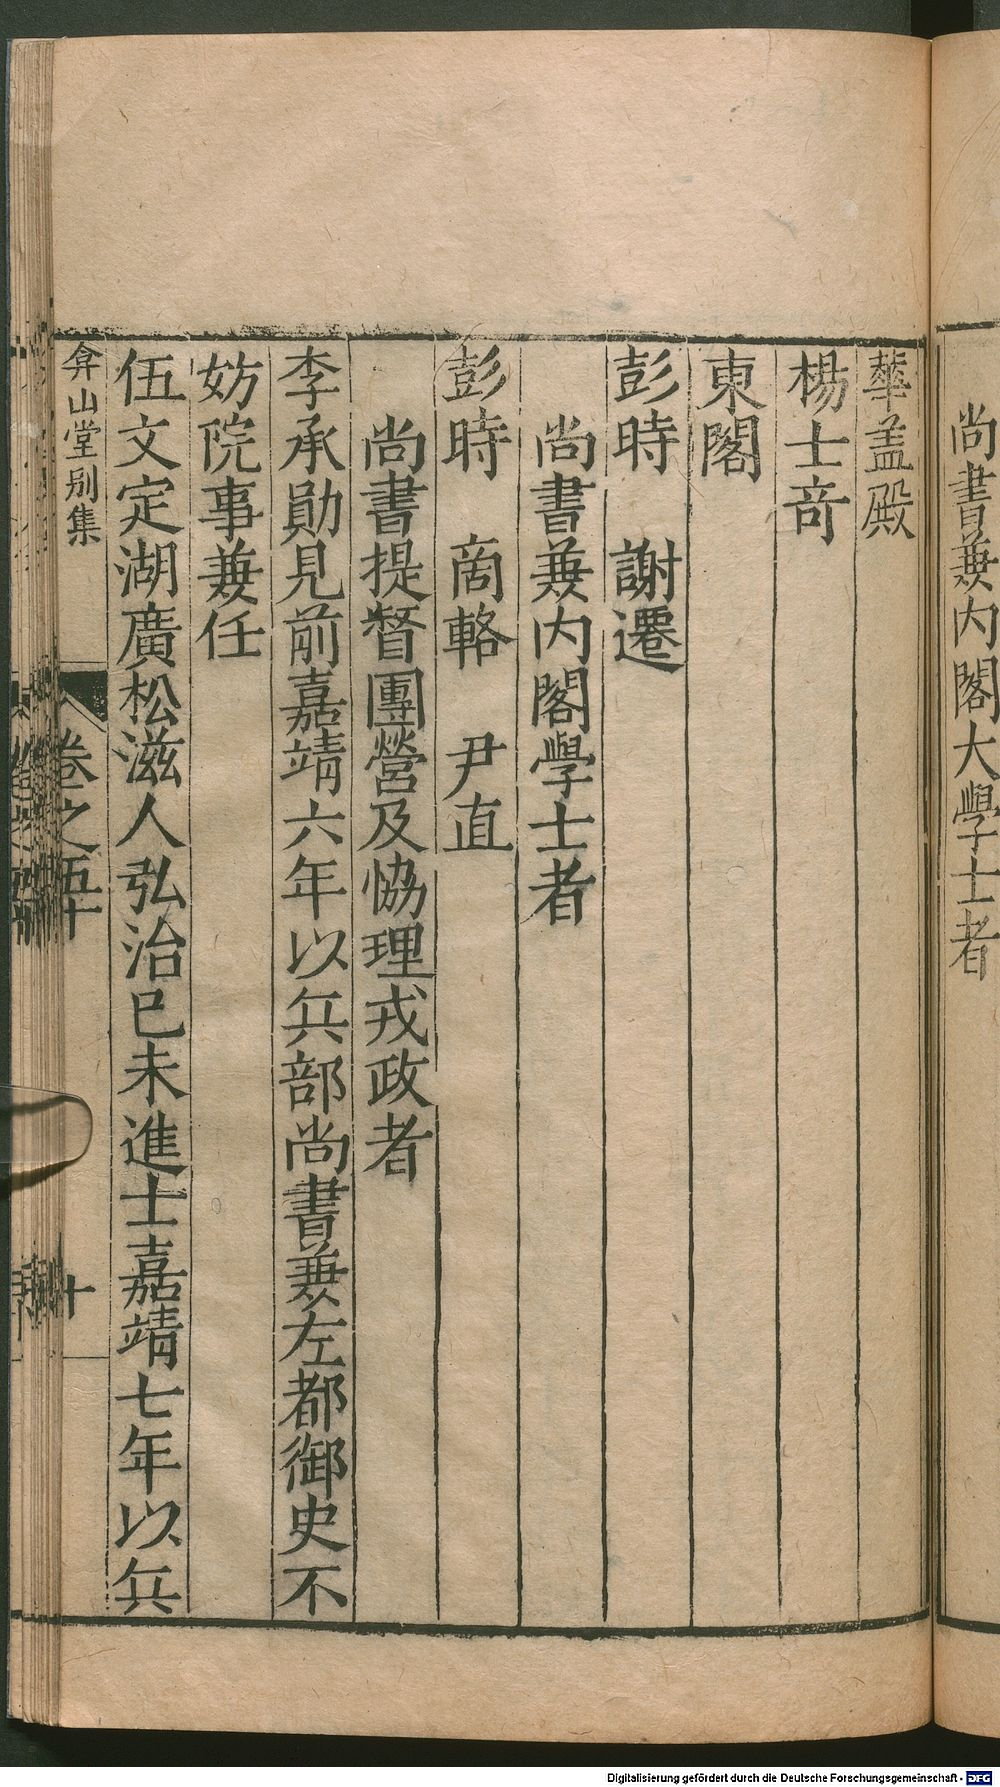 尚書兼内閣大學士者
華盖殿
楊士竒
東閣
彭時　謝遷
尚書兼内閣學士者
彭時　商輅　尹直
尚書提督團營及恊理戎政者
李承勛見前嘉靖六年以兵部尚書兼左都御史不
妨院事兼任
伍文定湖廣松滋人弘治巳未進士嘉靖七年以兵
弇山堂别集
卷之五十
十
Digitalisierung gefördert durch die Deutsche Forschungsgemeinschaft - DFG